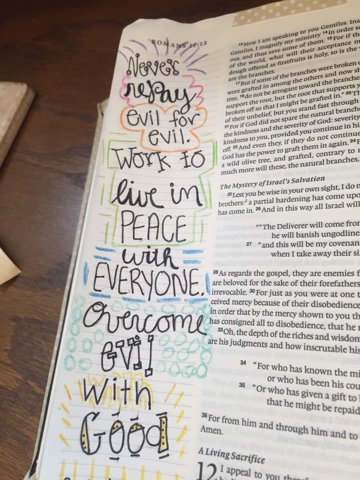 ROMANS 11:13
Never
repay
evil for
evil.
Work to
live in
PEACE
with
EVERYONE.
Overcome
EVIl
with
GOOD
13 Now I am speaking to you Gentiles. In
Gentiles, I magnify my ministry 14 in order
ous, and thus save some of them. 15 For if
of the world, what will their acceptance
dough offered as firstfruits is holy, so is the
are the branches.
17 But if some of the branches were broken
grafted in among the others and now
do not be arrogant toward the branches
support the root, but the root that supports you. 19 Th
broken off so that I might be grafted in." 20 Th
of their unbelief, but you stand fast through
21 For if God did not spare the natural branches
the kindness and the severity of God: severity
kindness to you, provided you continue in hi
off. 23 And even they, if they do not continue
God has the power to graft them in again.
a wild olive tree, and grafted, contrary to
much more will these, the natural branches
The Mystery of Israel's Salvation
25 Lest you be wise in your own sight, I do
brothers: a partial hardening has come upon
has come in. 26 And in this way all Israel will
"The Deliverer will come from
he will banish ungodline
27 "and this will be my covenant
when I take away their si
28 As regards the gospel, they are enemies f
are beloved for the sake of their forefathers
irrevocable. 30 For just as you were at one
ceived mercy because of their disobedience
in order that by the mercy shown to you th
has consigned all to disobedience, that he
33 Oh, the depth of the riches and wisdom
are his judgments and how inscrutable hi
34 "For who has known the mi
or who has been his cou
35 "Or who has given a gift to
that he might be repaid
36 For from him and through him and to
Amen.
A Living Sacrifice
12 I appeal to you theref